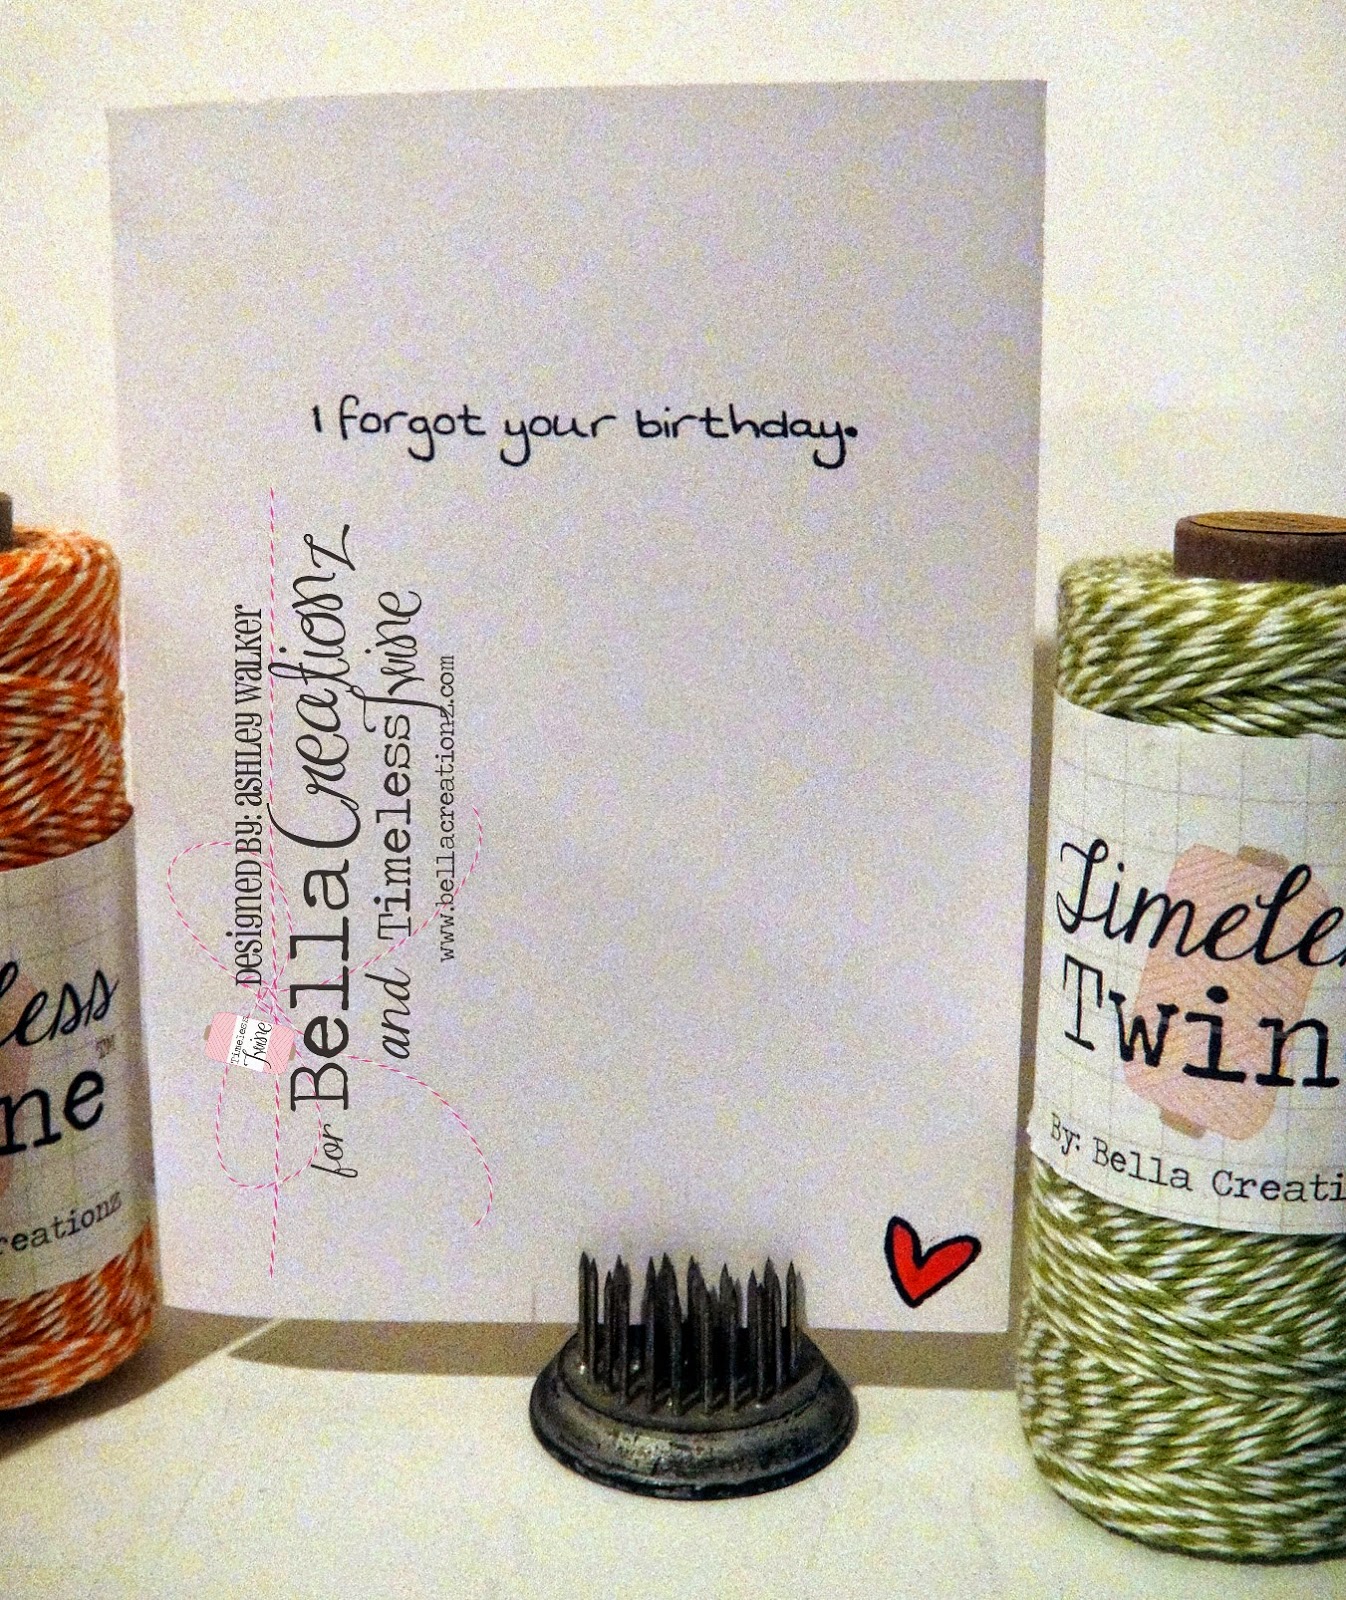 I forgot your birthday.
Designed By: Ashley Walker
for Bella Creationz
and Timeless Twine
www.bellacreationz.com
Timeless
Twine
less
TM
ne
reationz
Timele
Twin
By: Bella Creati